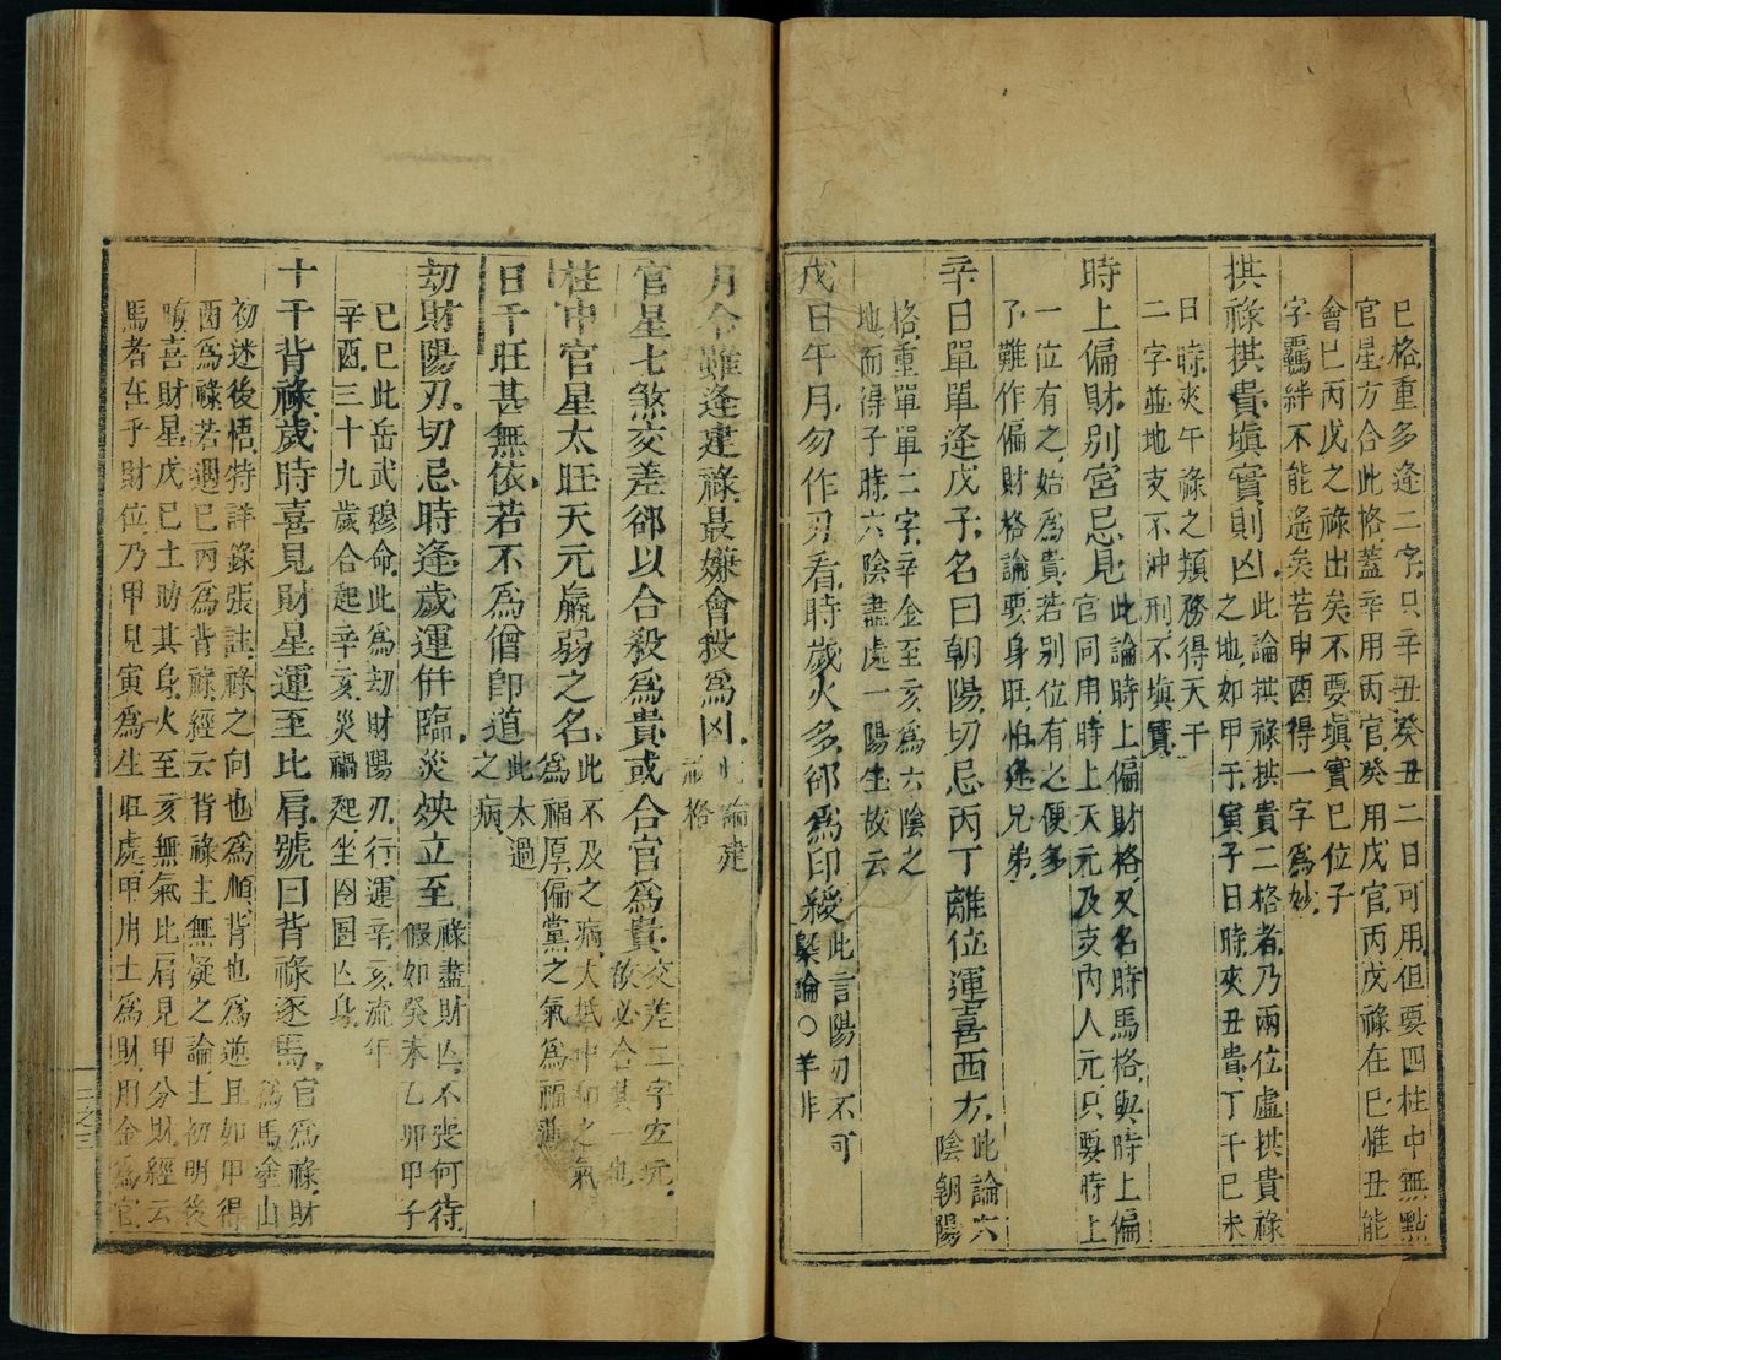 巳格.重多逢二字.只辛丑癸丑二日可用.但要四柱中無點
官星方合此格.蓋辛用丙官.癸用戊官.丙戊祿在巳.惟丑能
會巳丙戊之祿出矣.不要塡實巳位子
字羈絆不能遙矣若申酉得一字爲妙.
拱祿拱貴.塡實則凶.此論拱祿拱貴二格者.乃兩位虛拱貴祿
之地.如甲于寅子日時.夾丑貴.丁干巳未
日時.夾午祿之類務得天干
二字並地支不沖刑.不塡實.
時上偏財.别宮忌見.此論時上偏財格.又名時馬格.與時上偏
官同用.時上天元及支內人元.只要時上
一位有之.始爲貴.若别位有之便多
了.難作偏財格論.要身旺.怕逢兄弟.
辛日單單逢戊子.名曰朝陽.切忌丙丁離位運喜西方.此論六
陰朝陽
格.重單單二字.辛金至亥爲六陰之
地.而得子時.六陰盡處一陽生故云
戊日午月.勿作刃看.時歲火多.郤爲印綬此言陽刃不可
槩論〇羊非
月令雖逢建祿.最嫌會殺爲凶.此論建
祿格
官星七煞交差郤以合殺爲貴或合官爲貴.交差二字玄元.
故必合其一也
柱中官星太旺天元羸弱之名.此不及之病.大抵中和之氣
爲福厚偏黨之氣爲福薄
日干旺甚無依.若不爲僧卽道此太過
之病
劫財陽刃.切忌時逢歲運併臨.災殃立至.祿盡財凶.不喪何待.
假如癸未乙卯甲子
己巳此岳武穆命.此爲劫財陽刃.行運辛亥流年
辛酉.三十九歲合起辛亥.災禍起.坐囹圄凶身.
十干背祿.歲時喜見財星運至比肩.號曰背祿逐馬.官爲祿.財
爲馬.奎山
初迷後悟.特詳錄張註.祿之向也爲順.背也爲逆.且如甲得
酉爲祿.若遇巳丙爲背祿.經云背祿主無疑之論.主初明後
晦喜財星戊己土助其身.火至亥無氣.比肩見甲分財.經云
馬者在乎財位.乃甲見寅爲生旺處.甲用土爲財.用金爲官.